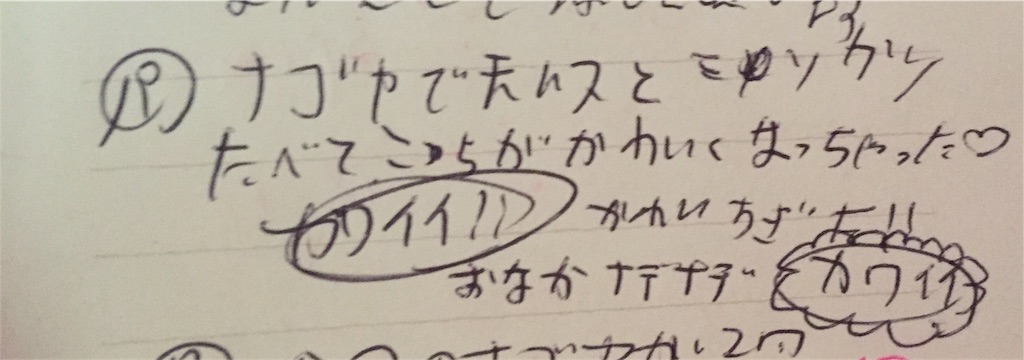 パ ナゴヤで天ムスとミソカツ
たべてこっちがかわいくなっちゃった♡
カワイイ!!!
おなかナデナデ カワイイ